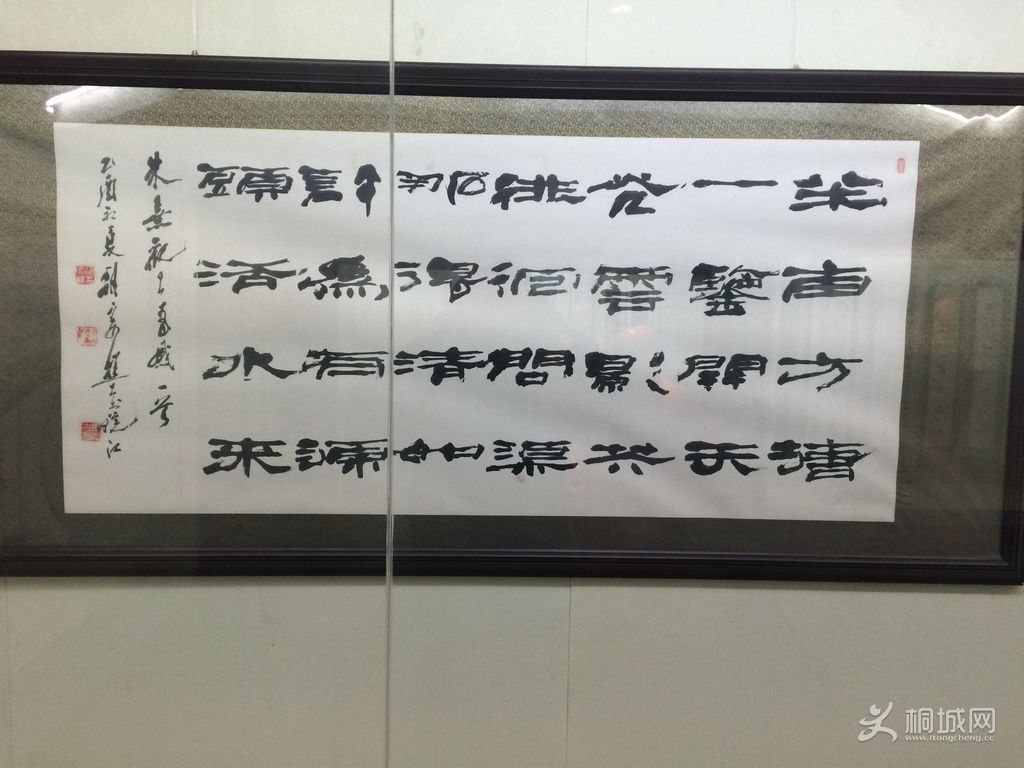 半亩方塘
一鑒開天
光雲影共
徘徊問渠
那得清如
許為有源
頭活水來
朱熹觀书有感一首
乙酉初夏
桐城网
www.itongcheng.cc